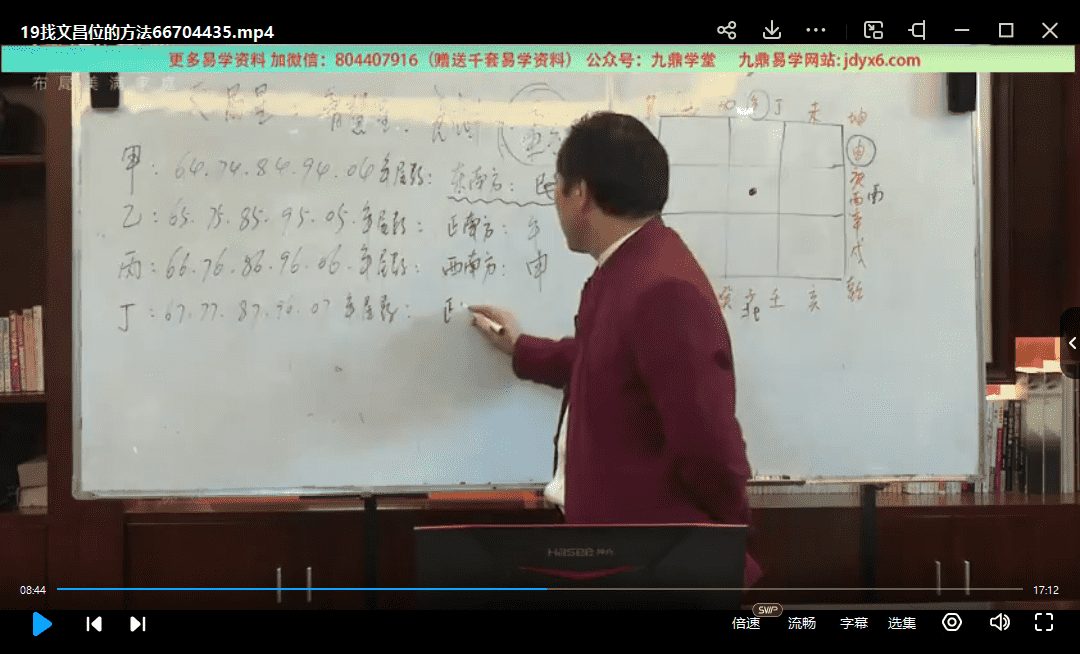 19找文昌位的方法66704435.mp4
更多易学资料 加微信：804407916（赠送千套易学资料） 公众号：九鼎学堂 九鼎易学网站:jdyx6.com
布局美满家庭
甲：64.74.84.94.04年尾数：东南方：
乙：65.75.85.95.05.年尾数：正南方：午
丙：66.76.86.96.06.年尾数：西南方：申
丁：67.77.87.96.07年尾数：正
丁 未 坤
申
庚
酉 西
辛
戌
癸 壬 亥 乾
Hasee 神舟
08:44 17:12
SVIP
倍速 流畅 字幕 选集